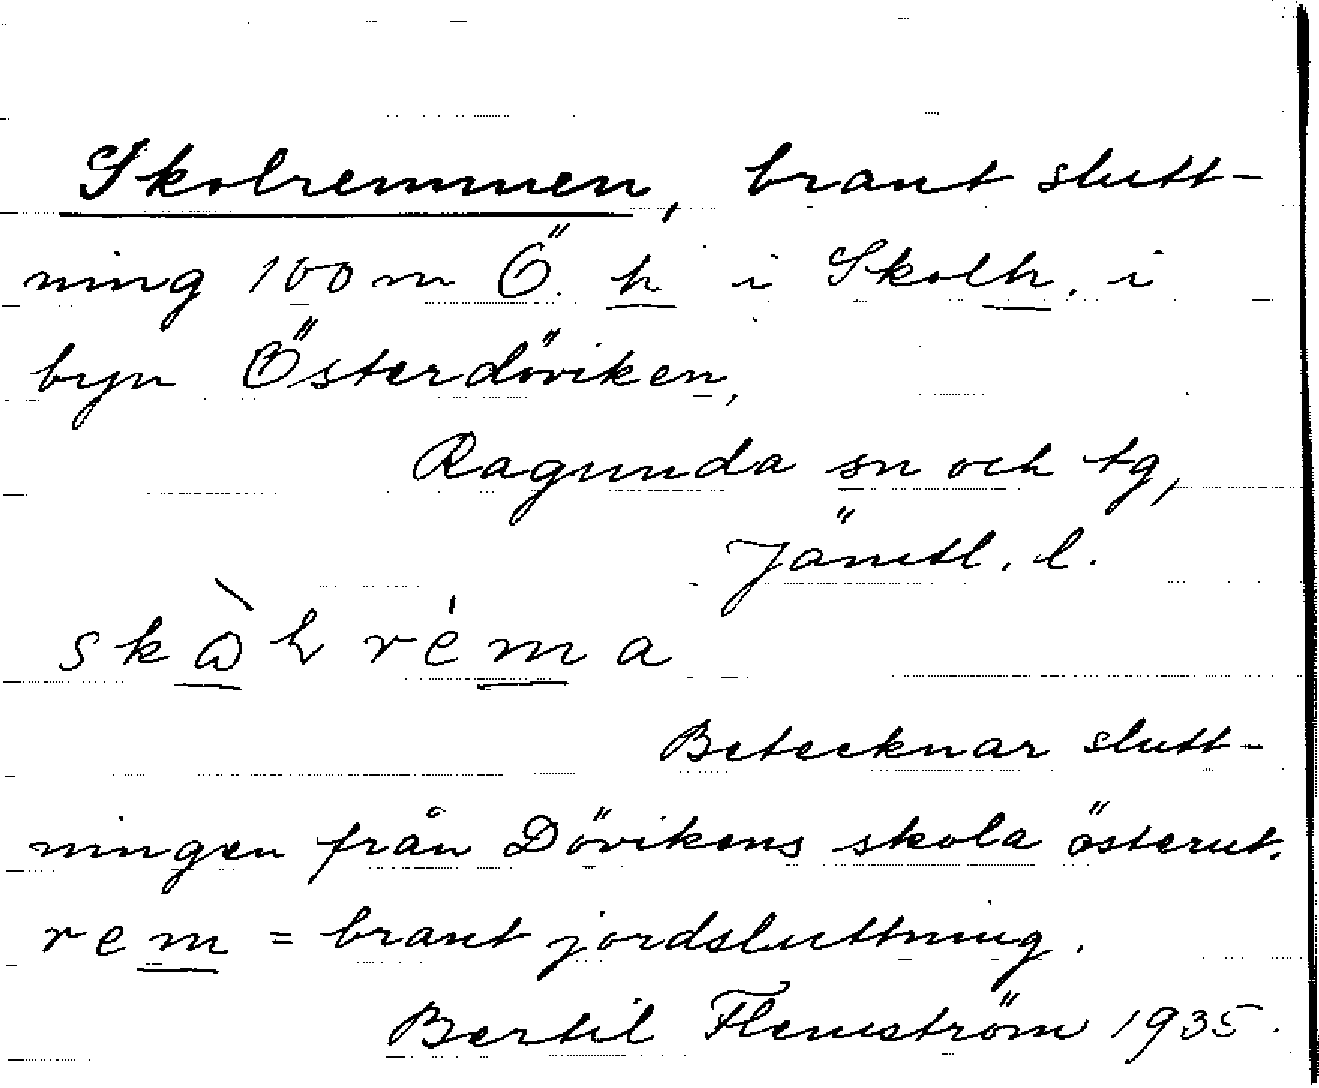 Skolremmen, brant slutt-
ning 100 m Ö. h i Skolh. i
byn Österdöviken,
Ragunda sn och tg,
Jämtl. l.
rema
Betecknar slutt-
ningen från Dövikens skola österut.
rem = brant jordsluttning.
Bertil Flemström 1935.